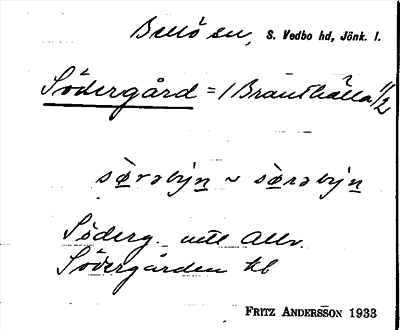 Bellö sn, S. Vedbo hd, Jönk. l.
Södergård = 1 Branthälla 1/2
sø̀rəbyn ~ sø̀rəbyn
Söderg. utt Allv.
Södergården kb
FRITZ ANDERSSON 1933